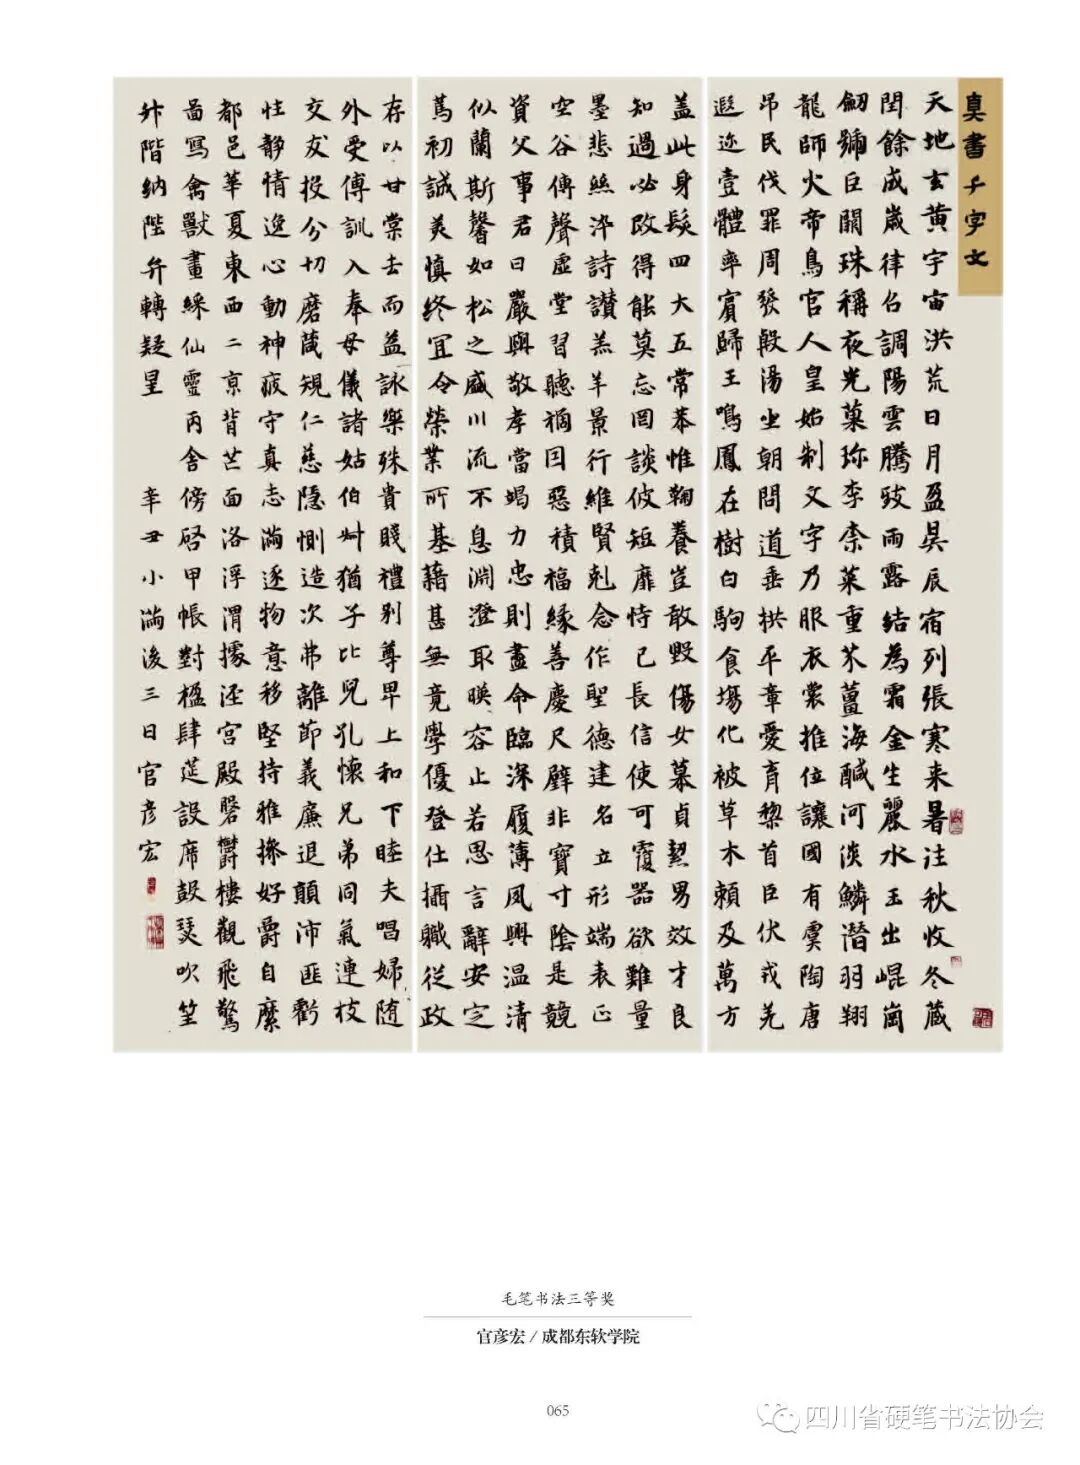 真書千字文
天地玄黃宇宙洪荒日月盈昃辰宿列張寒来暑往秋收冬藏
閏餘成歲律召調陽雲騰致雨露結為霜金生麗水玉出崐崗
劒號巨闕珠稱夜光菓珍李柰菜重芥薑海鹹河淡鱗潛羽翔
龍師火帝鳥官人皇始制文字乃服衣裳推位讓國有虞陶唐
吊民伐罪周發殷湯坐朝問道垂拱平章愛育黎首臣伏戎羌
遐迩壹體率賓歸王鳴鳳在樹白駒食場化被草木賴及萬方
盖此身髮四大五常恭惟鞠養豈敢毀傷女慕貞絜男效才良
知過必改得能莫忘罔談彼短靡恃己長信使可覆器欲難量
墨悲絲染詩讃羔羊景行維賢剋念作聖德建名立形端表正
空谷傳聲虛堂習聽禍因惡積福緣善慶尺璧非寶寸陰是競
資父事君曰嚴與敬孝當竭力忠則盡命臨深履薄夙興温清
似蘭斯馨如松之盛川流不息淵澄取暎容止若思言辭安定
篤初誠美慎終宜令榮業所基藉甚無竟學優登仕攝職從政
存以甘棠去而益詠樂殊貴賤禮别尊卑上和下睦夫唱婦随
外受傅訓入奉母儀諸姑伯叔猶子比兒孔懷兄弟同氣連枝
交友投分切磨箴規仁慈隱惻造次弗離節義廉退顛沛匪虧
性静情逸心動神疲守真志滿逐物意移堅持雅操好爵自縻
都邑華夏東西二京背芒面洛浮渭據涇宮殿磐鬱樓觀飛驚
圖寫禽獸畫綵仙靈丙舍傍啓甲帳對楹肆筵設席鼓瑟吹笙
升階納陛弁轉疑星 辛丑小滿後三日官彦宏
毛笔书法三等奖
官彦宏 / 成都东软学院
065
四川省硬笔书法协会